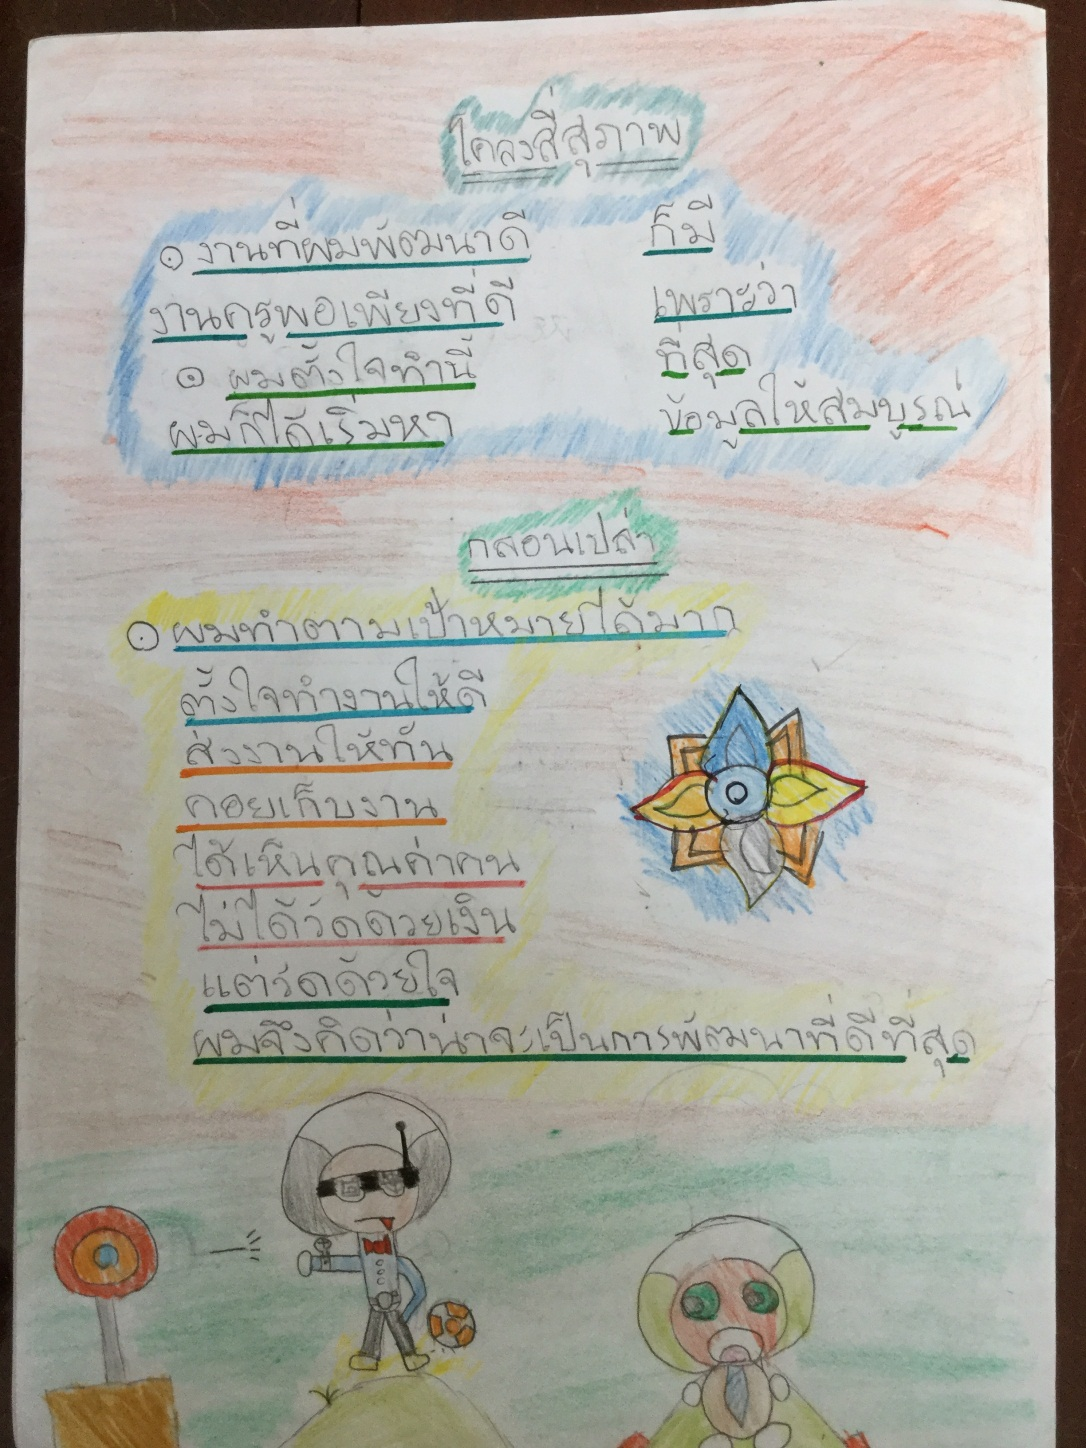 โคลงสี่สุภาพ
๏ งานที่ผมพัฒนาดี ก็มี
งานครูพอเพียงที่ดี เพราะว่า
๏ ผมตั้งใจทำนี้ ที่สุด
ผมก็ได้เริ่มหา ข้อมูลให้สมบูรณ์
กลอนเปล่า
๏ ผมทำตามเป้าหมายได้มาก
ตั้งใจทำงานให้ดี
ส่งงานให้ทัน
คอยเก็บงาน
ได้เห็นคุณค่าคน
ไม่ได้วัดด้วยเงิน
แต่วัดด้วยใจ
ผมจึงคิดว่าน่าจะเป็นการพัฒนาที่ดีที่สุด